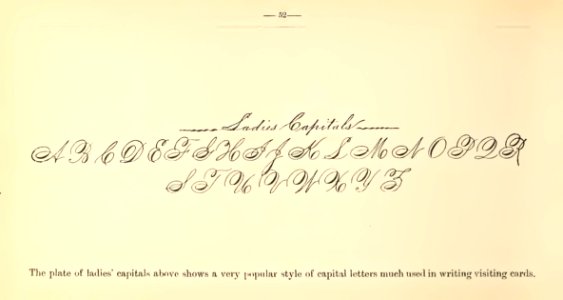 — 52 —
Ladies Capitals
A B C D E F G H I J K L M N O P Q R
S T U V W X Y Z
The plate of ladies' capitals above shows a very popular style of capital letters much used in writing visiting cards.